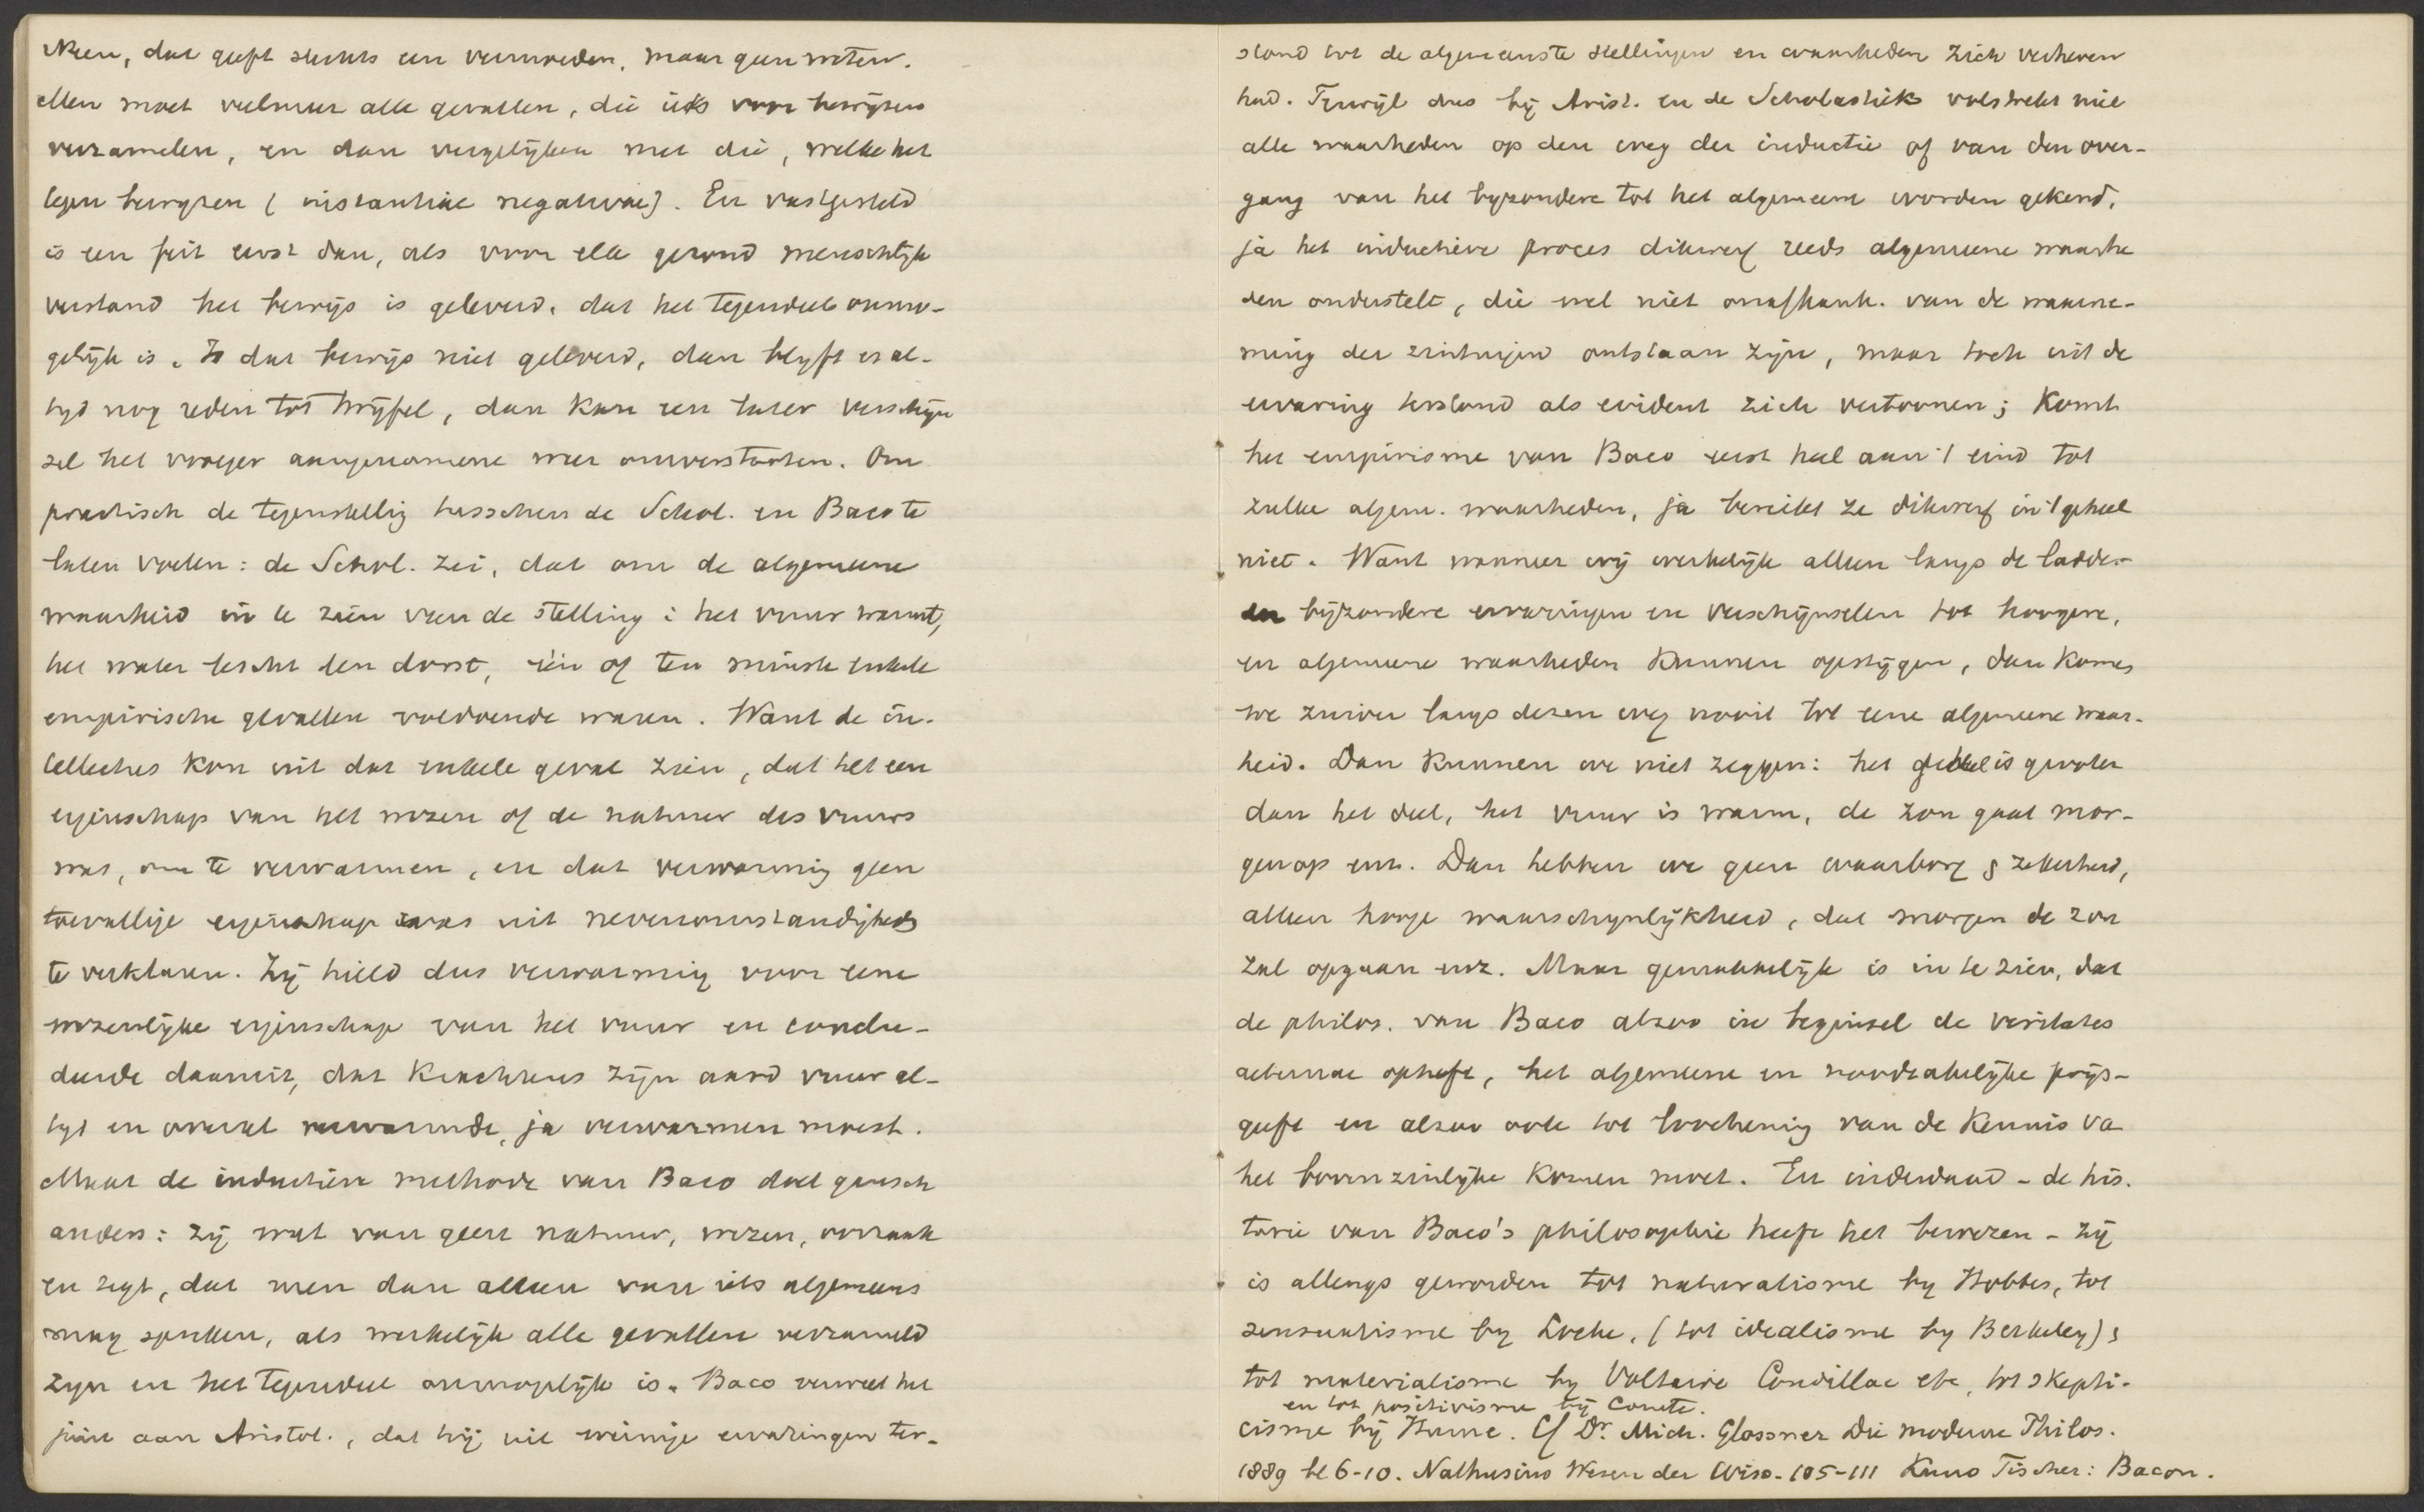 Neen, dat geeft slechts een vermoeden, maar geen weten.
Men moet veelmeer alle gevallen, die iets voor bewijzen
verzamelen, en dan vergelijken met die, welke het
tegen bewyzen (instantiae negativae). En vastgesteld
is een feit eerst dan, als voor elk gezond menschlijk
verstand het bewijs is geleverd, dat het tegendeel onmo-
gelijk is. Is dat bewijs niet geleverd, dan blyft er al-
tyd nog reden tot twijfel, dan kan een later verschijn
sel het vroeger aangenomene weer omverstooten. Om
practisch de tegenstellig tusschen de Schol. en Baco te
laten voelen: de Schol. zei, dat om de algemeene
waarheid in te zien van de stelling: het vuur warmt,
het water lescht den dorst, één of ten minste enkele
empirische gevallen voldoende waren. Want de in-
tellectus kon uit dat enkele geval zien, dat het een
eigenschap van het wezen of de natuur des vuurs
was, om te verwarmen, en dat verwarming geen
toevallige eigenschap was uit nevenomstandigheds
te verklaren. Zij hield dus verwarmig voor eene
wezenlijke eigenschap van het vuur en conclu-
deerde daaruit, dat krachtens zijn aard vuur al-
tyd en overal verwarmde, ja verwarmen moest.
Maar de inductieve methode van Baco doet gansch
anders: zij weet van geen natuur, wezen, oorzaak
en zegt, dat men dan alleen van iets algemeens
mag spreken, als werkelijk alle gevallen verzameld
zyn en het tegendeel onmogelijk is. Baco verweet het
juist aan Aristot., dat hij uit weinige ervaringen ter-
stond tot de algemeenste stellingen en waarheden zich verheven
had. Terwijl dus bij Arist. en de Scholastiek volstrekt niet
alle waarheden op den weg der inductie of van den over-
gang van het byzondere tot het algemeene worden gekend,
ja het inductieve proces dikwerf reeds algemeene waarhe
den onderstelt, die wel niet onafhank. van de waarne-
ming der zintuigen ontstaan zijn, maar toch uit de
ervaring terstond als evident zich vertoonen; komt
het empirisme van Baco eerst heel aan 't eind tot
zulke algem. waarheden, ja bereikt ze dikwerf in 't geheel
niet. Want wanneer wij werkelijk alleen langs de ladder
bijzondere ervaringen en verschijnselen tot hoogere,
en algemeene waarheden kunnen opstijgen, dan komes
we zuiver langs dezen weg nooit tot eene algemeene waar-
heid. Dan kunnen we niet zeggen: het geheel is grooter
dan het deel, het vuur is warm, de zon gaat mor-
gen op enz. Dan hebben we geen waarborg § zekerheid,
alleen hooge waarschynlijkheid, dat morgen de zon
zal opgaan enz. Maar gemakkelijk is in te zien, dat
de philos. van Baco alzoo in beginsel de veritates
aeternae opheft, het algemeene en noodzakelijke prijs-
geeft en alzoo ook tot loochenig van de kennis va
het bovenzinlijke komen moet. En inderdaad – de his.
torie van Baco's philosophie heeft het bewezen – zij
is allengs geworden tot naturalisme by Hobbes, tot
sensualisme by Locke, (tot idealisme by Berkeley) §
tot materialisme by Voltaire Condillac etc, tot skepti-
en tot positivisme bij Comte.
cisme bij Hume. Cf Dr. Mich. Glossner Die moderne Philos.
1889 bl 6-10. Nathusius Wesen der Wiss. 105-111 Kuno Fischer: Bacon.